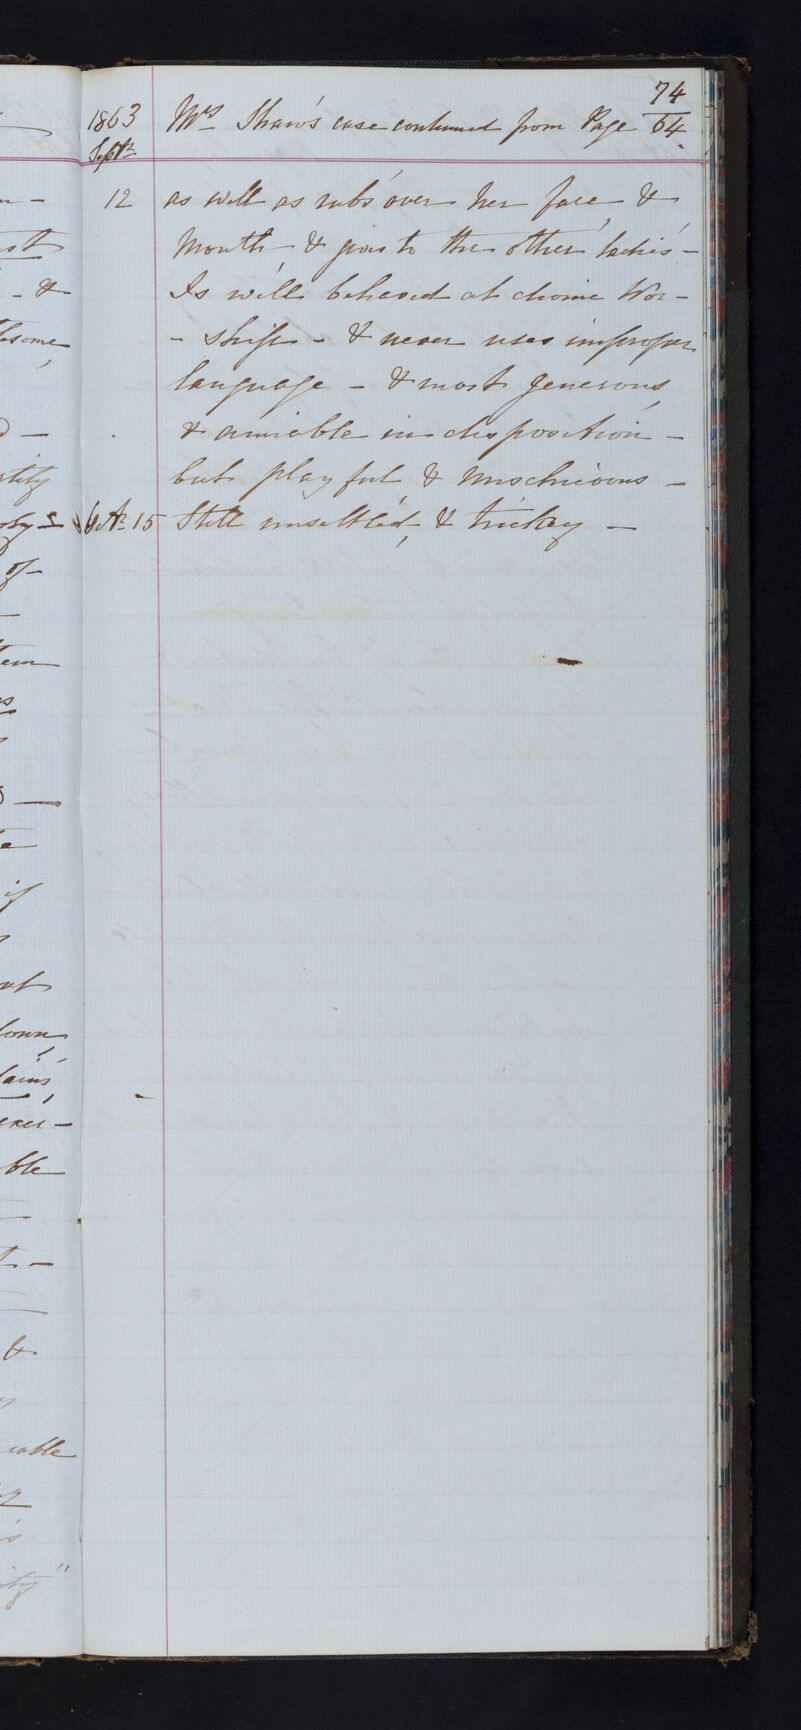 74
1863 Mrs Shaw's case continued from Page 64.
Septr
12 as well as rubs over her face, &
mouth, & gives to the other ladies -
Is well behaved at divine Wor-
- ship - & never uses improper
language - & most generous,
& amiable in disposition -
but playful & mischievous -
Septr 15 Still unsettled, & tricky -